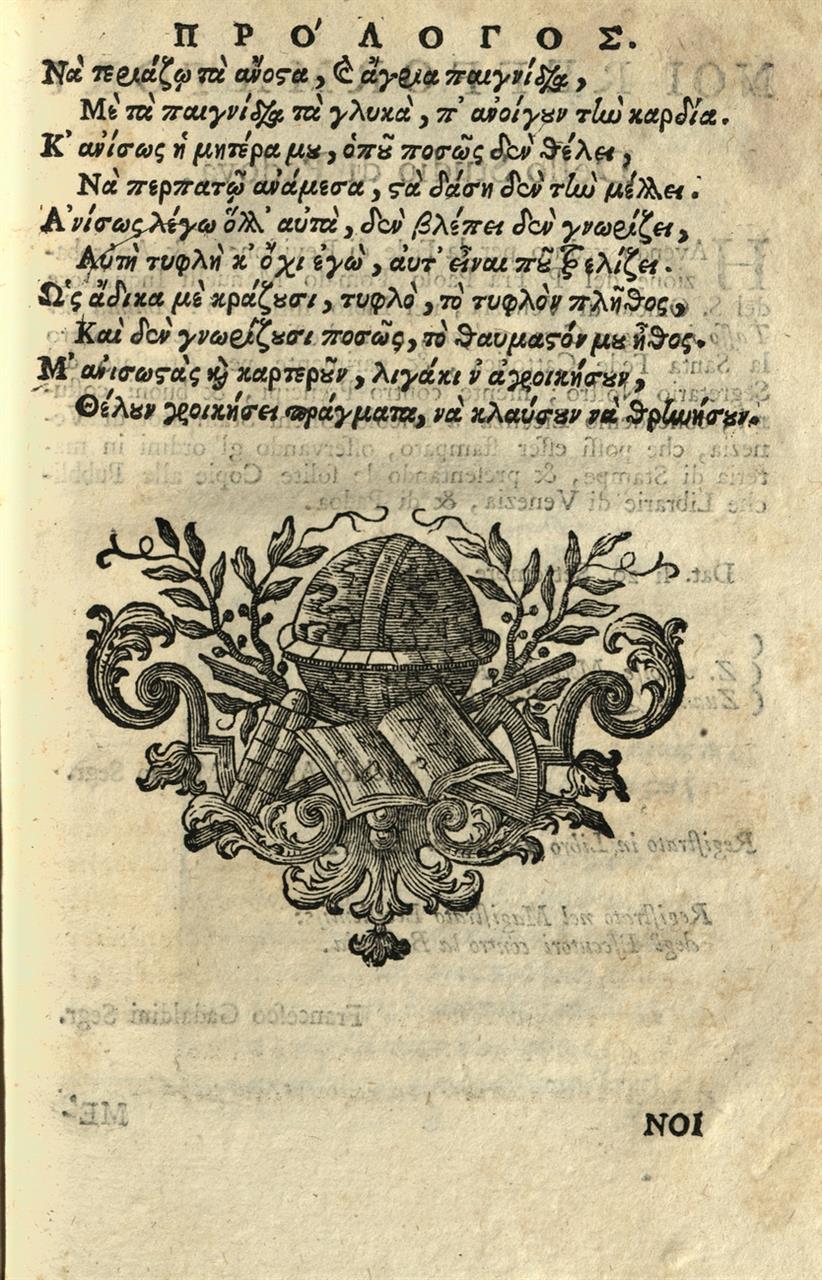 ΠΡΌΛΟΓΟΣ.
Νὰ τεριάζῳ τὰ ἄνοςα, Ϗ ἄγρια παιγνίδια,
Μὲ τὰ παιγνίδια τὰ γλυκὰ, π' ἀνοίγουν τὴν καρδία.
Κ' ἀνίσως ἡ μητέρα μου, ὁποῦ ποσῶς δὲν θέλει,
Νὰ περπατῶ ἀνάμεσα, ςὰ δάση δὲν τὴν μέλλει.
Ἀνίσως λέγω ὅλλ' αὐτὰ, δὲν βλέπει δὲν γνωρίζει,
Αὐτὴ τυφλὴ κ' ὄχι ἐγὼ, ἀυτ' εἶναι ποῦ ξελίζει.
Ὡς ἄδικα μὲ κράζουσι, τυφλὸ, τὸ τυφλὸν πλῆθος,
Καὶ δὲν γνωρίζουσι ποσῶς, τὸ θαυμαςόν μου ἦθος.
Μ' ἀνισωςὰς καὶ καρτεροῦν, λιγάκι ν' ἀγροικήσουν,
Θέλουν γροικήσει πράγματα, νὰ κλαύσουν νὰ θρηνήσουν.
ΝΟΙ